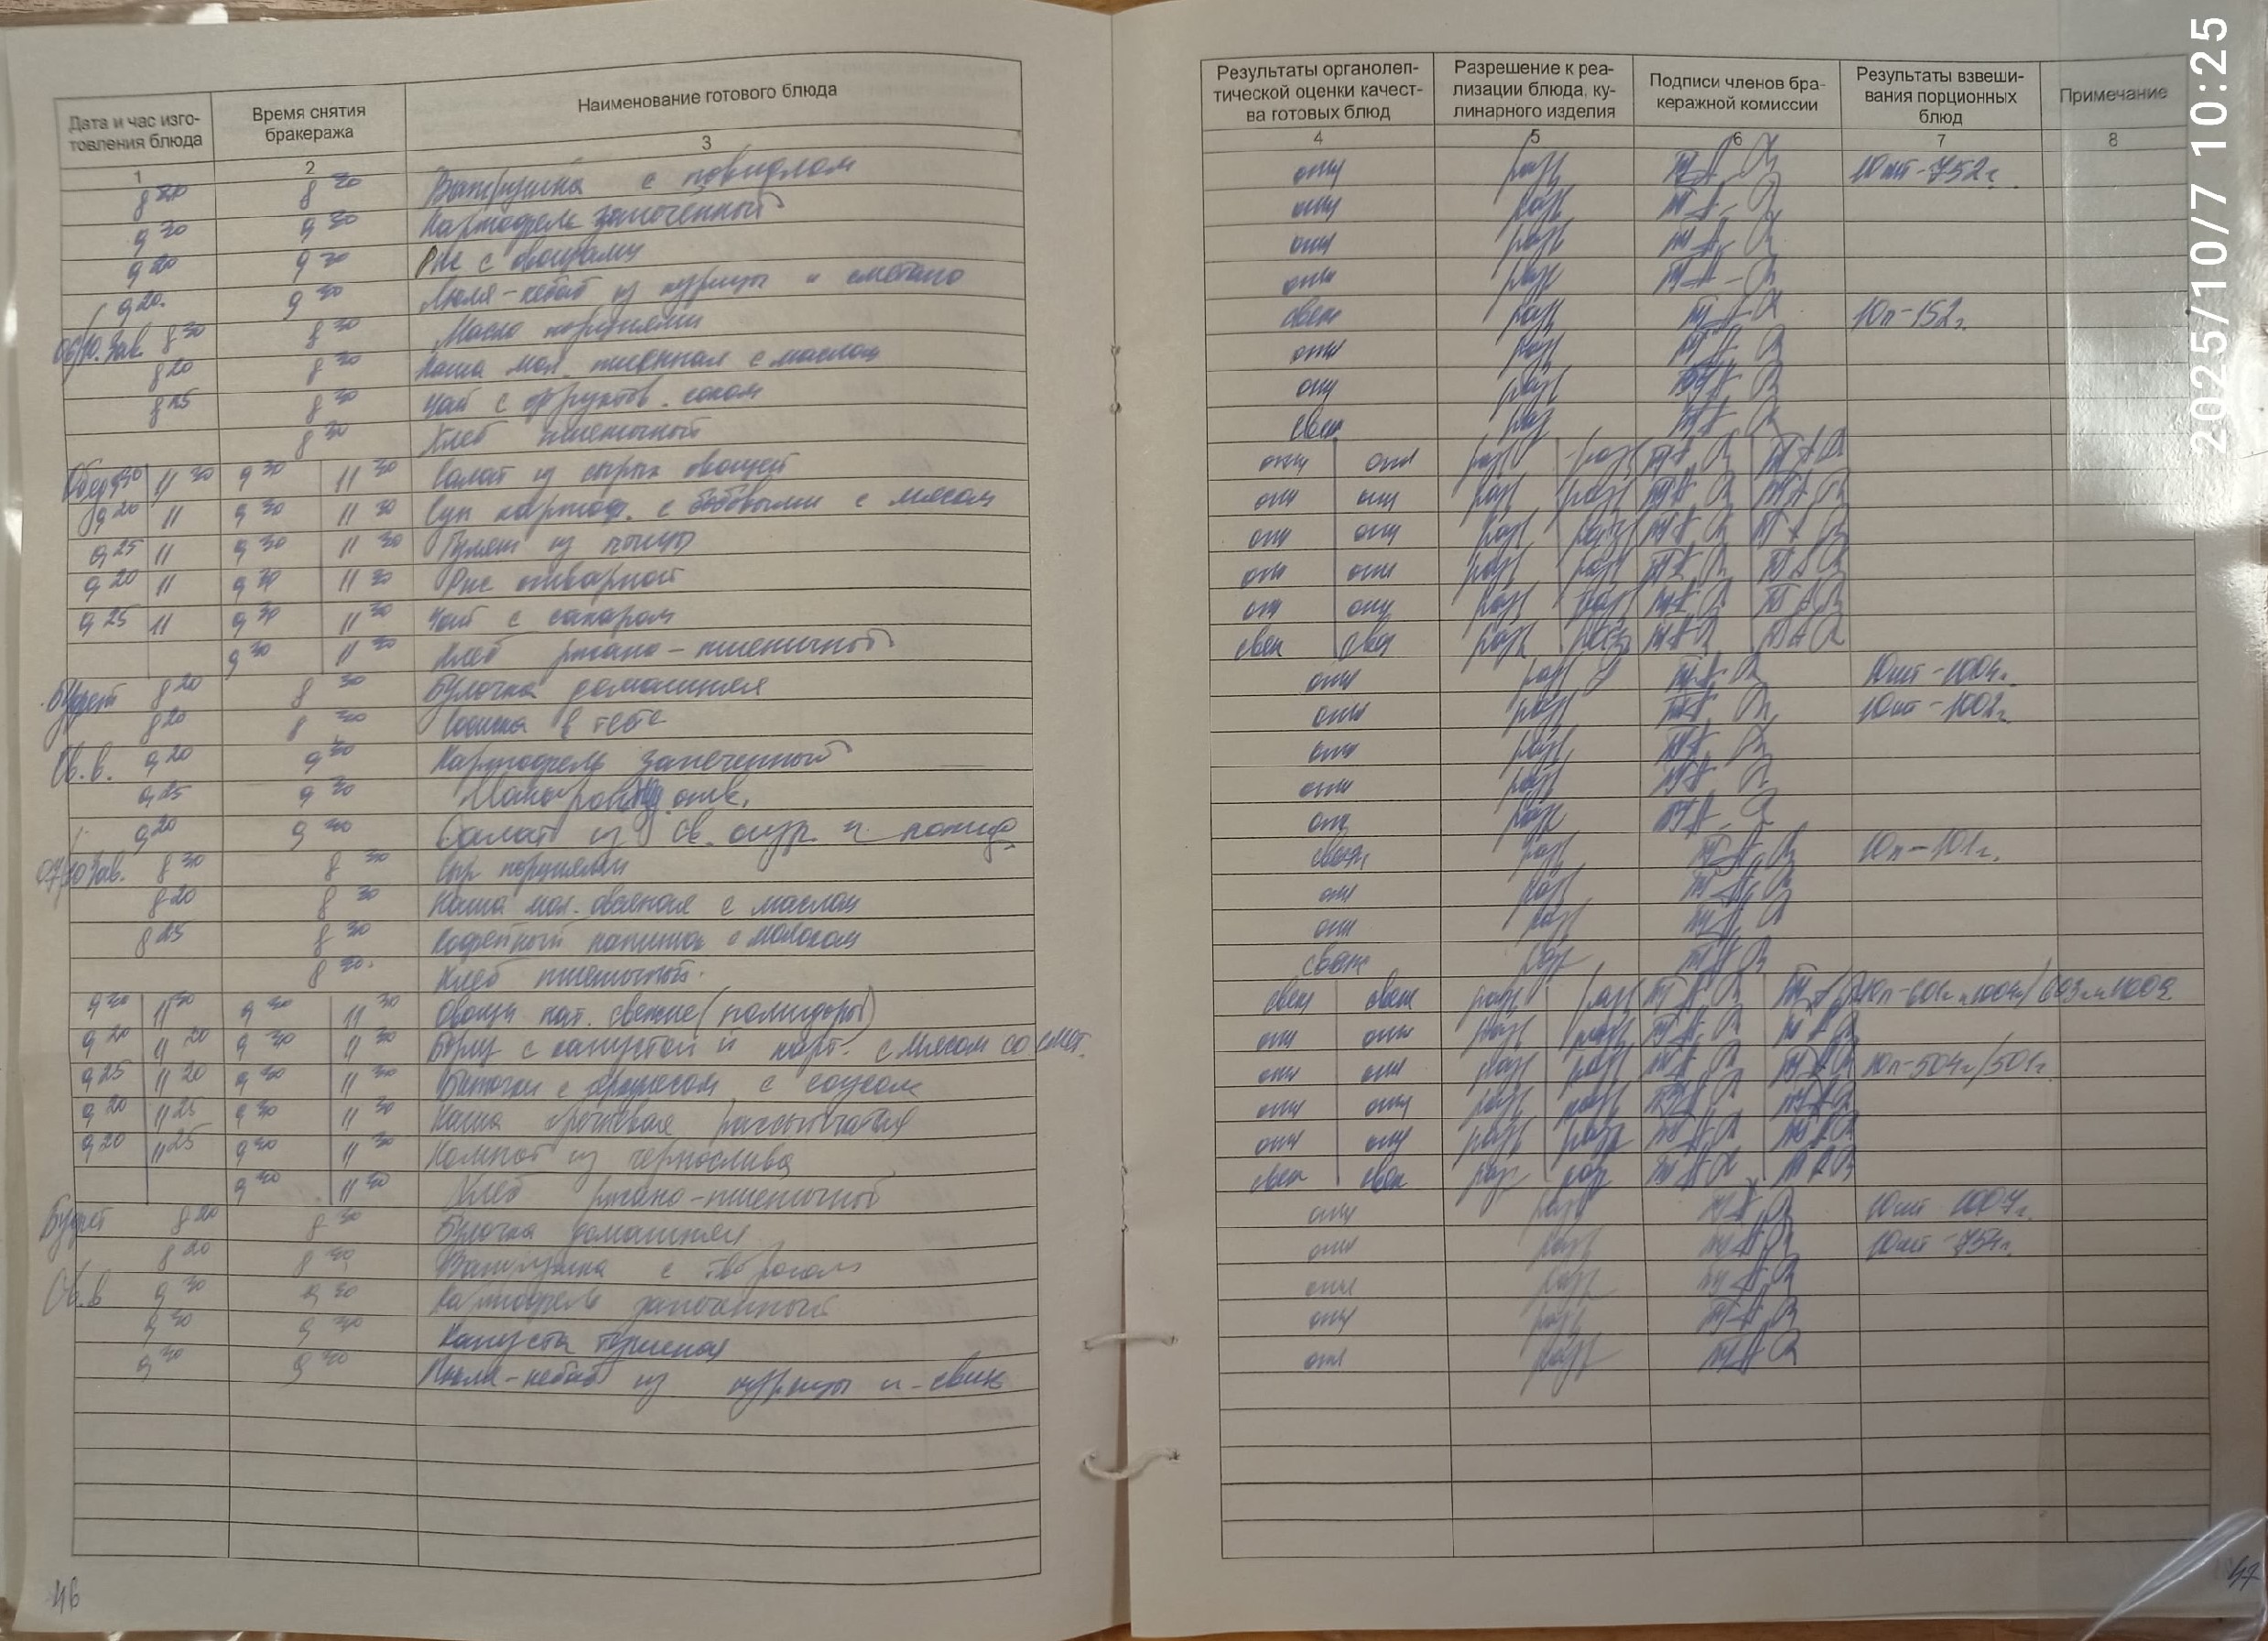 Дата и час изго-
товления блюда
Время снятия
бракеража
Наименование готового блюда
Результаты органолеп-
тической оценки качест-
ва готовых блюд
Разрешение к реа-
лизации блюда, ку-
линарного изделия
Подписи членов бра-
керажной комиссии
Результаты взвеши-
вания порционных
блюд
Примечание
1 2 3 4 5 6 7 8
8 20 8 20 Ватрушка с повидлом отл разр 10шт-752г.
9 20 9 30 Картофель запеченный отл разр
9 20 9 30 Рис с овощами отл разр
9 20. 9 30 Люля-кебаб из курицы отл разр
06/10. Зав. 8 30 8 30 Масло порциями свеж разр 10п-152г.
8 20 8 30 Каша мол. пшенная с маслом отл разр
8 25 8 30 Чай с фруктов. соком отл разр
8 30 Хлеб пшеничный свеж разр
Обед 9 30 11 30 9 30 11 30 Салат из сырых овощей отл отл разр разр
9 20 11 9 30 11 30 Суп картоф. с бобовыми с мясом отл отл разр разр
9 25 11 9 30 11 30 Гуляш из птицы отл отл разр разр
9 20 11 9 30 11 30 Рис отварной отл отл разр разр
9 25 11 9 30 11 30 Чай с сахаром отл отл разр разр
9 30 11 30 Хлеб ржано-пшеничный свеж свеж разр разр
Буфет 8 20 8 30 Булочка домашняя отл разр 10шт-1004г.
8 20 8 30 Сосиска в тесте отл разр 10шт-1002г.
Св. в. 9 20 9 30 Картофель запеченный отл разр
9 25 9 30 Макароны отв. отл разр
9 20 9 30 Салат из св. огур. и помид. отл разр
07/10 Зав. 8 30 8 30 Сыр порциями свеж разр 10п-101г.
8 20 8 30 Каша мол. овсяная с маслом отл разр
8 25 8 30 Кофейный напиток с молоком отл разр
8 30. Хлеб пшеничный. свеж разр
9 30 11 30 9 30 11 30 Овощи нат. свежие (помидоры) свеж свеж разр разр
9 20 11 20 9 30 11 30 Борщ с капустой и карт. с мясом со смет. отл отл разр разр
9 25 11 20 9 30 11 30 Биточки с соусом отл отл разр разр 10п-504г/501г.
9 20 11 25 9 30 11 30 Каша гречневая рассыпчатая отл отл разр разр
9 20 11 25 9 30 11 30 Компот из чернослива отл отл разр разр
9 30 11 30 Хлеб ржано-пшеничный свеж свеж разр разр
Буфет 8 20 8 30 Булочка домашняя отл разр 10шт 1007г.
8 20 8 30 Ватрушка с творогом отл разр 10шт-754г.
Св. в 9 30 9 30 Картофель запеченный отл разр
9 30 9 30 Капуста тушеная отл разр
9 30 9 30 Люля-кебаб из курицы и свин отл разр
46
47
2025/10/7 10:25